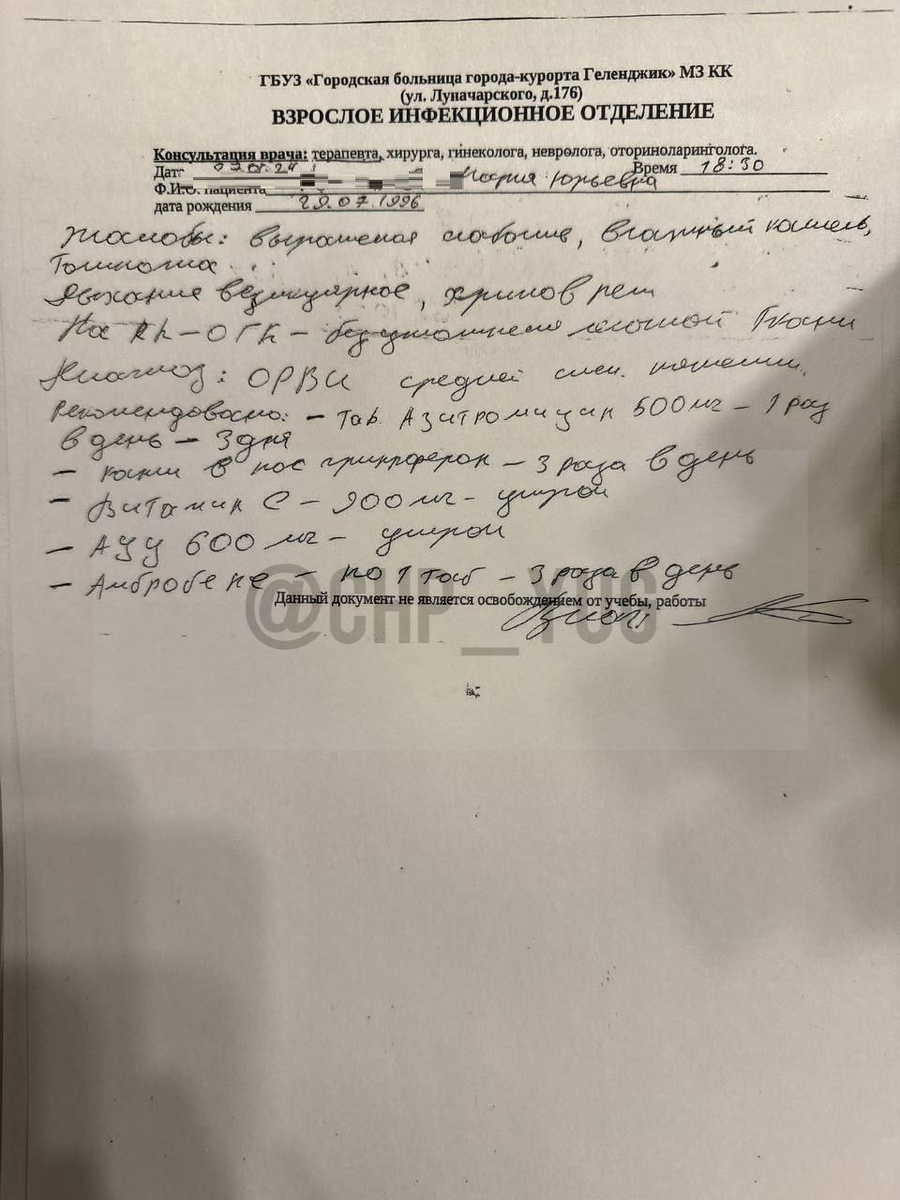 ГБУЗ «Городская больница города-курорта Геленджик» МЗ КК
(ул. Луначарского, д.176)
ВЗРОСЛОЕ ИНФЕКЦИОННОЕ ОТДЕЛЕНИЕ
Консультация врача: терапевта, хирурга, гинеколога, невролога, оториноларинголога.
Время 18:30
Ф.И.О. пациента Мария Юрьевна
дата рождения 29.07.1996
Жалобы: выраженая слабость, влажный кашель,
Тошнота
Дыхание везикулярное, хрипов нет
На ОГК - без уплотнения легочной ткани
Диагноз: ОРВИ средней степ. тяжести
Рекомендовано: - Таб. Азитромицин 500мг - 1 раз
в день - 3 дня
- капли в нос гриппферон - 3 раза в день
- Витамин С - 900 мг - утром
- АЦЦ 600 мг - утром
- Амбробене - по 1 таб - 3 раза в день
Данный документ не является освобождением от учебы, работы
@CHP_